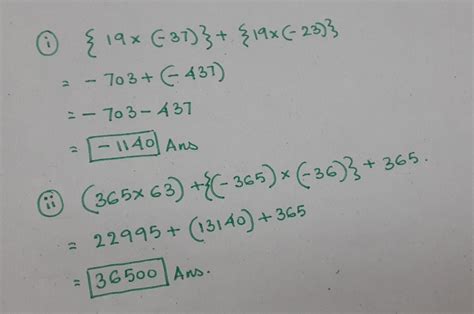 (i) {19 × (-37)} + {19 × (-23)}
= - 703 + (- 437)
= - 703 - 437
= - 1140 Ans
(ii) (365 × 63) + {(- 365) × (-36)} + 365.
= 22995 + (13140) + 365
= 36500 Ans.